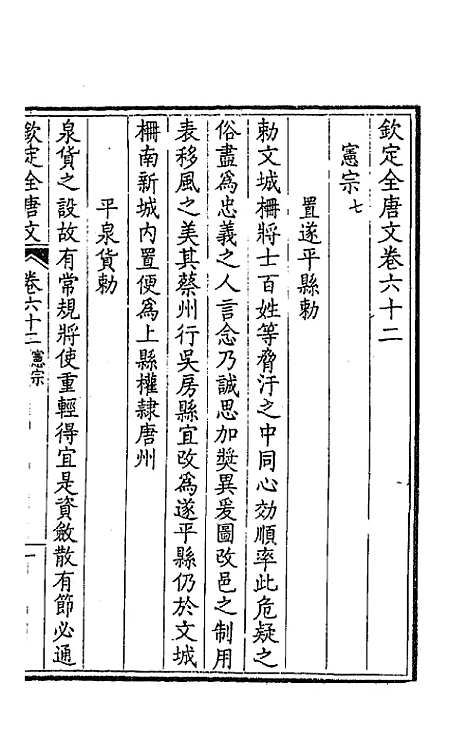 欽定全唐文卷六十二
憲宗七
置遂平縣勅
勅文城柵將士百姓等脅汙之中同心効順率此危疑之
俗盡爲忠義之人言念乃誠思加奬異爰圖改邑之制用
表移風之美其蔡州行吳房縣宜改爲遂平縣仍於文城
柵南新城內置便爲上縣權隸唐州
平泉貨勅
泉貨之設故有常規將使重輕得宜是資斂散有節必通
欽定全唐文 卷六十二 憲宗 一